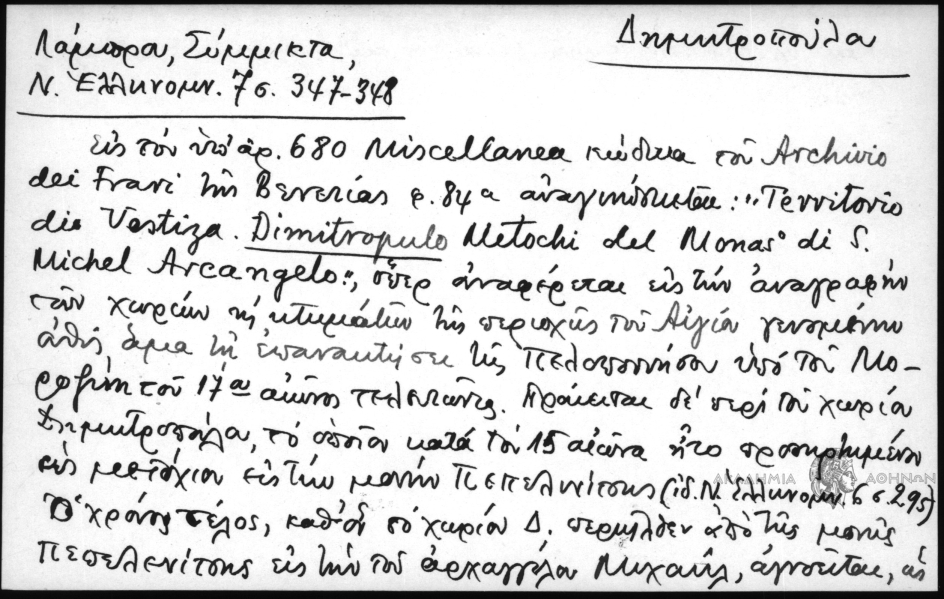 Δημητροπούλα
Λάμπρου, Σύμμικτα,
Ν. Ἑλληνομν. 7 σ. 347-348
Εἰς τὸν ὑπ' ἀρ. 680 Miscellanea κώδικα τοῦ Archivio
dei Frari τῆς Βενετίας φ. 84α ἀναγινώσκεται: "Territorio
die Vostiza. Dimitropulo Metochi del Monas° di S.
Michel Arcangelo", ὅπερ ἀναφέρεται εἰς τὴν ἀναγραφὴν
τῶν χωρίων κτημάτων τῆς περιοχῆς τοῦ Αἰγίου γενομένην
εὐθὺς ἅμα τῇ ἐπανακτήσει τῆς Πελοποννήσου ὑπὸ τοῦ Μο-
ροζίνη τοῦ 17ου αἰῶνος τελευτῶντος. Πρόκειται δὲ περὶ τοῦ χωρίου
Δημητροπούλα, τὸ ὁποῖον κατὰ τὸν 15 αἰῶνα ἦτο προσηρτημένον
ὡς μετόχιον εἰς τὴν μονὴν Πεπελενίτσης (ἰδ. Ν. Ἑλληνομν. 6 σ. 295)
Ὁ χρόνος τέλος, καθ' ὃν τὸ χωρίον Δ. περιῆλθεν ἀπὸ τῆς μονῆς
Πεπελενίτσης εἰς τὴν τοῦ ἀρχαγγέλου Μιχαήλ, ἀγνοεῖται, ὡς
ΑΚΑΔΗΜΙΑ ΑΘΗΝΩΝ